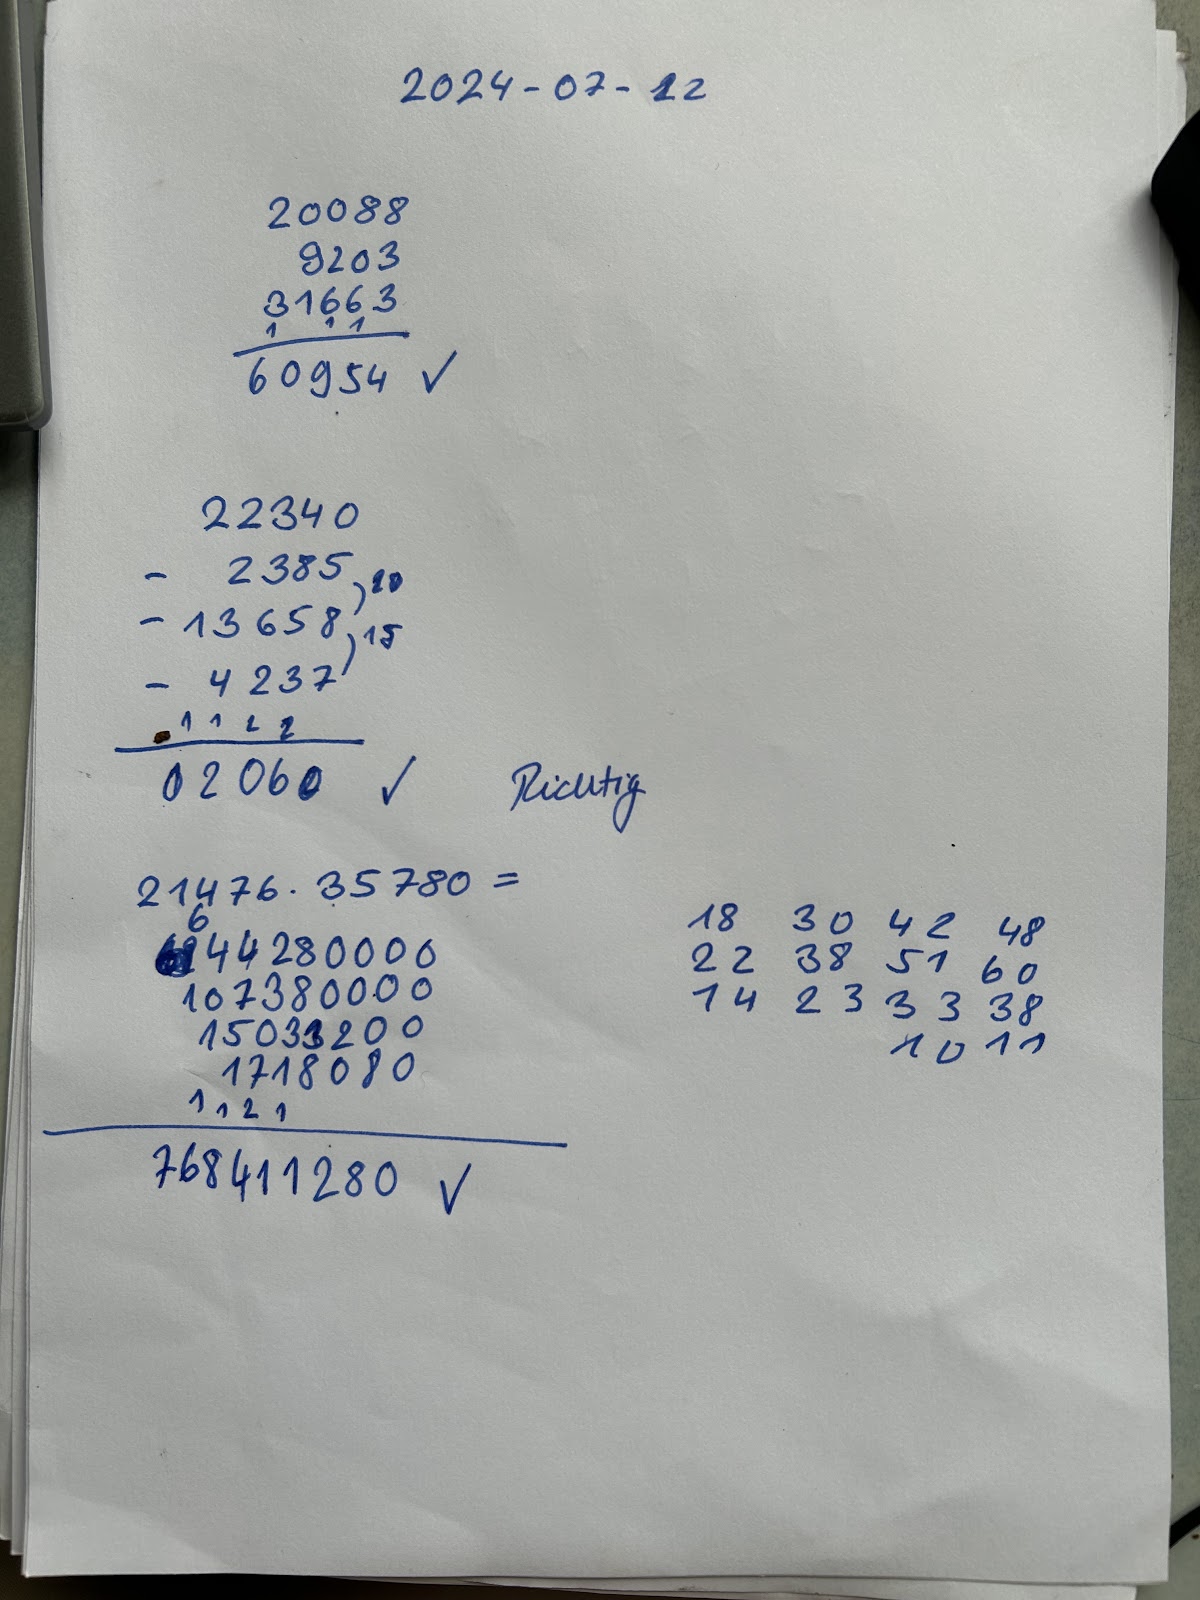 2024-07-12
20088
9203
31663
1 1 1
60954 ✓
22340
- 2385 ) 20
- 13658 ) 15
- 4237
1 1 2 2
02060 ✓ Richtig
21476 · 35780 =
6
44280000
107380000
15033200
1718080
1 1 2 1
768411280 ✓
18 30 42 48
22 38 51 60
14 23 33 38
10 11